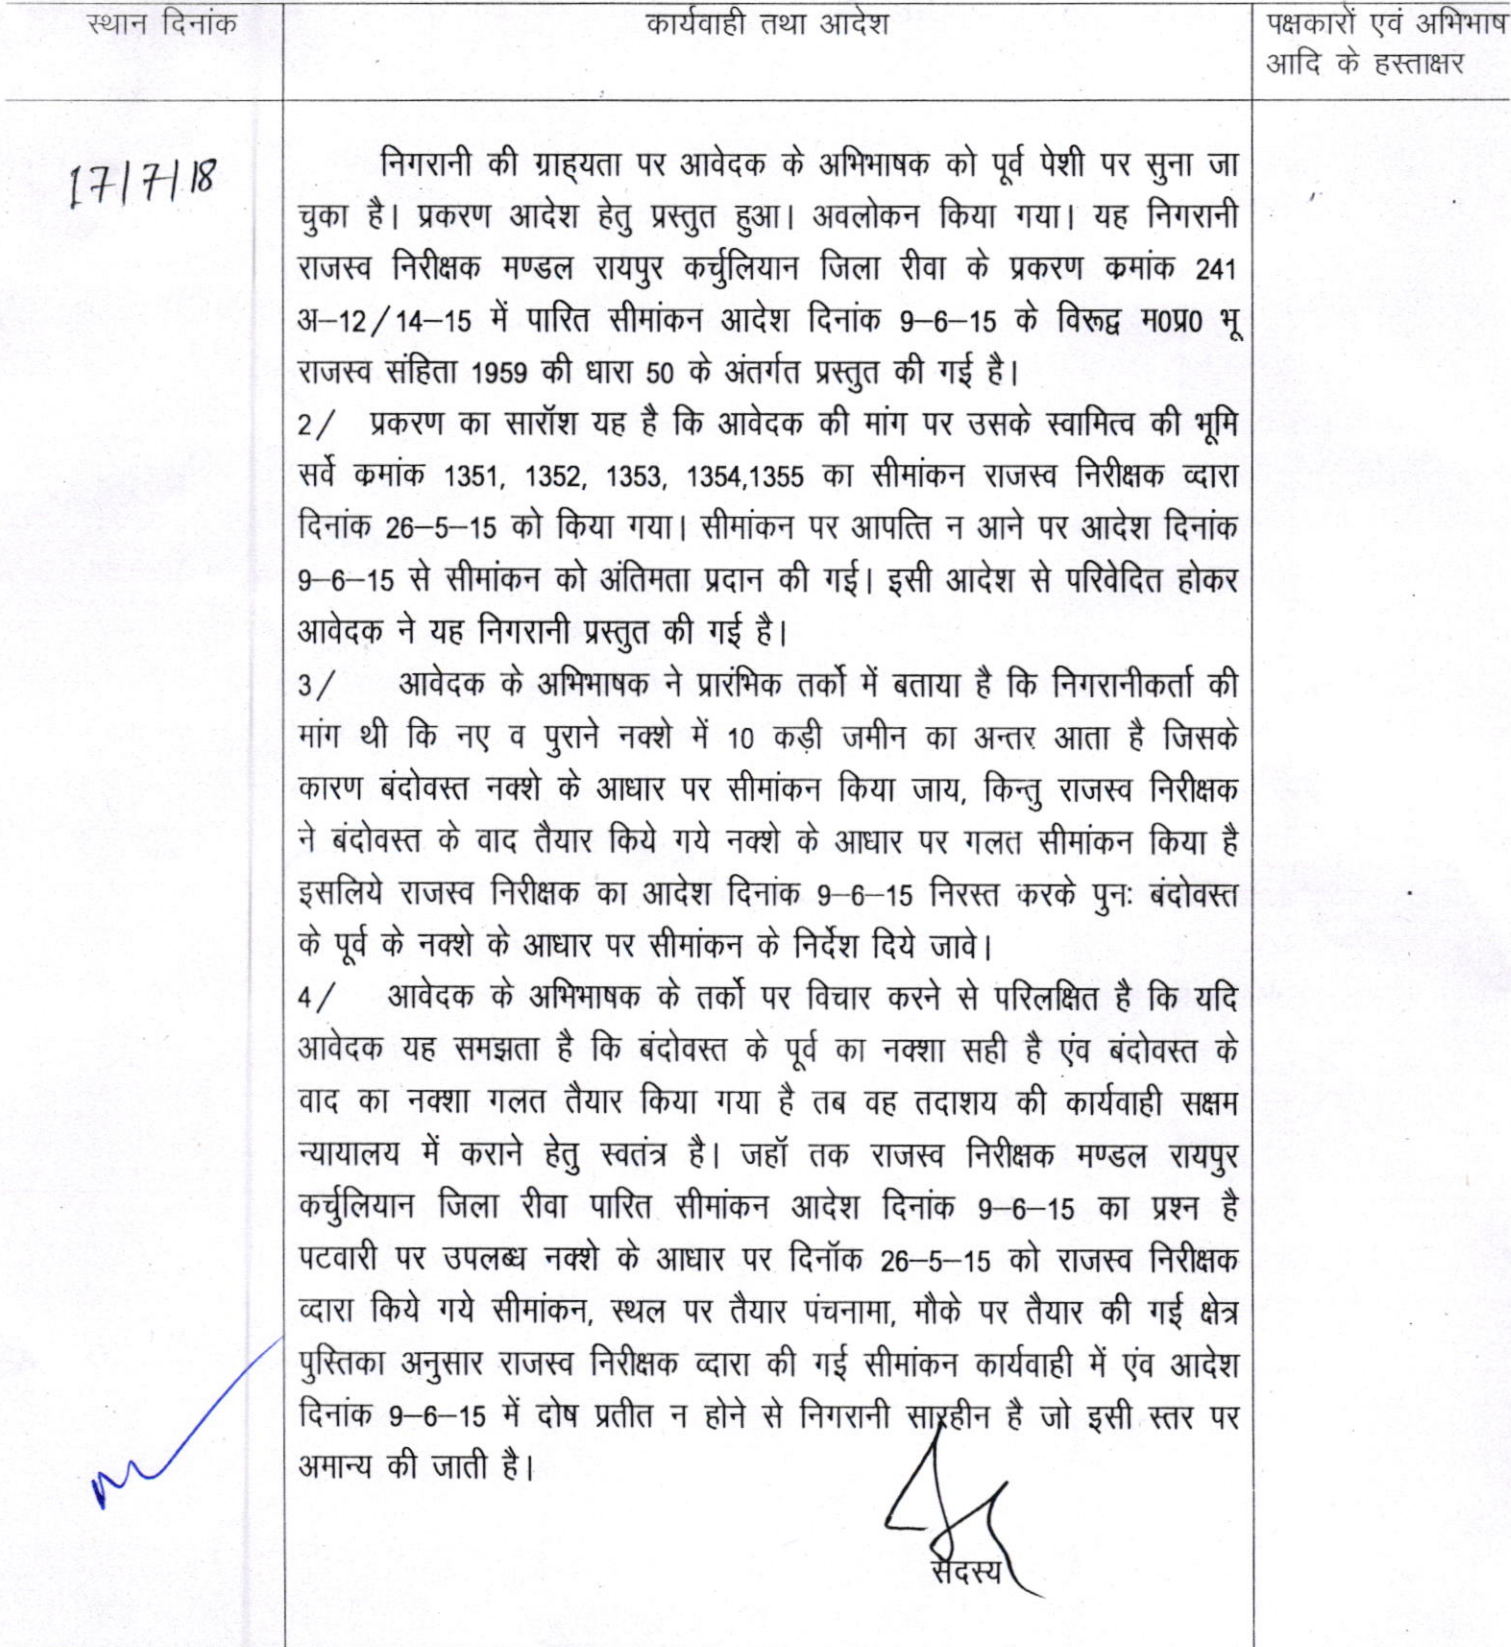 स्थान दिनांक
कार्यवाही तथा आदेश
पक्षकारों एवं अभिभाष
आदि के हस्ताक्षर
17/7/18
निगरानी की ग्राह्यता पर आवेदक के अभिभाषक को पूर्व पेशी पर सुना जा
चुका है। प्रकरण आदेश हेतु प्रस्तुत हुआ। अवलोकन किया गया। यह निगरानी
राजस्व निरीक्षक मण्डल रायपुर कर्चुलियान जिला रीवा के प्रकरण कमांक 241
अ–12/14–15 में पारित सीमांकन आदेश दिनांक 9–6–15 के विरूद्व म0प्र0 भू
राजस्व संहिता 1959 की धारा 50 के अंतर्गत प्रस्तुत की गई है।
2/ प्रकरण का सारॉश यह है कि आवेदक की मांग पर उसके स्वामित्व की भूमि
सर्वे कमांक 1351, 1352, 1353, 1354,1355 का सीमांकन राजस्व निरीक्षक व्दारा
दिनांक 26–5–15 को किया गया। सीमांकन पर आपत्ति न आने पर आदेश दिनांक
9–6–15 से सीमांकन को अंतिमता प्रदान की गई। इसी आदेश से परिवेदित होकर
आवेदक ने यह निगरानी प्रस्तुत की गई है।
3/ आवेदक के अभिभाषक ने प्रारंभिक तर्को में बताया है कि निगरानीकर्ता की
मांग थी कि नए व पुराने नक्शे में 10 कड़ी जमीन का अन्तर आता है जिसके
कारण बंदोवस्त नक्शे के आधार पर सीमांकन किया जाय, किन्तु राजस्व निरीक्षक
ने बंदोवस्त के वाद तैयार किये गये नक्शे के आधार पर गलत सीमांकन किया है
इसलिये राजस्व निरीक्षक का आदेश दिनांक 9–6–15 निरस्त करके पुनः बंदोवस्त
के पूर्व के नक्शे के आधार पर सीमांकन के निर्देश दिये जावे।
4/ आवेदक के अभिभाषक के तर्को पर विचार करने से परिलक्षित है कि यदि
आवेदक यह समझता है कि बंदोवस्त के पूर्व का नक्शा सही है एंव बंदोवस्त के
वाद का नक्शा गलत तैयार किया गया है तब वह तदाशय की कार्यवाही सक्षम
न्यायालय में कराने हेतु स्वतंत्र है। जहॉ तक राजस्व निरीक्षक मण्डल रायपुर
कर्चुलियान जिला रीवा पारित सीमांकन आदेश दिनांक 9–6–15 का प्रश्न है
पटवारी पर उपलब्ध नक्शे के आधार पर दिनॉक 26–5–15 को राजस्व निरीक्षक
व्दारा किये गये सीमांकन, स्थल पर तैयार पंचनामा, मौके पर तैयार की गई क्षेत्र
पुस्तिका अनुसार राजस्व निरीक्षक व्दारा की गई सीमांकन कार्यवाही में एंव आदेश
दिनांक 9–6–15 में दोष प्रतीत न होने से निगरानी सारहीन है जो इसी स्तर पर
अमान्य की जाती है।
सदस्य